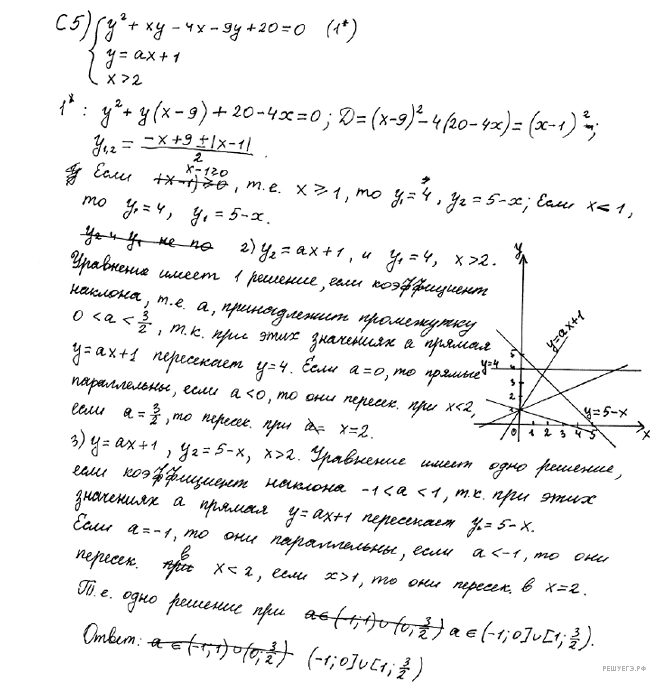 С5) { y² + xy - 4x - 9y + 20 = 0 (1*)
y = ax + 1
x > 2
1*: y² + y(x-9) + 20 - 4x = 0; D = (x-9)² - 4(20-4x) = (x-1)²;
y₁,₂ = (-x+9 ± |x-1|)/2.
Если x-1≥0, т.е. x ≥ 1, то y₁ = 4, y₂ = 5-x; Если x < 1,
то y₁ = 4, y₁ = 5-x.
2) y₂ = ax+1, и y₁ = 4, x > 2.
Уравнение имеет 1 решение, если коэффициент
наклона, т.е. а, принадлежит промежутку
0 < a < 3/2, т.к. при этих значениях а прямая
y = ax+1 пересекает y = 4. Если a = 0, то прямые
параллельны, если a < 0, то они пересек. при x < 2,
если a = 3/2, то пересек. при x = 2.
3) y = ax+1, y₂ = 5-x, x > 2. Уравнение имеет одно решение,
если коэффициент наклона -1 < a < 1, т.к. при этих
значениях а прямая y = ax+1 пересекает y₂ = 5-x.
Если a = -1, то они параллельны, если a < -1, то они
пересек. в x < 2, если x > 1, то они пересек. в x = 2.
Т.е. одно решение при a ∈ (-1; 0] ∪ [1; 3/2).
Ответ: (-1; 0] ∪ [1; 3/2)
y
y=ax+1
5
y=4
3
2
1
y=5-x
0 1 2 3 4 5 x
РЕШУЕГЭ.РФ